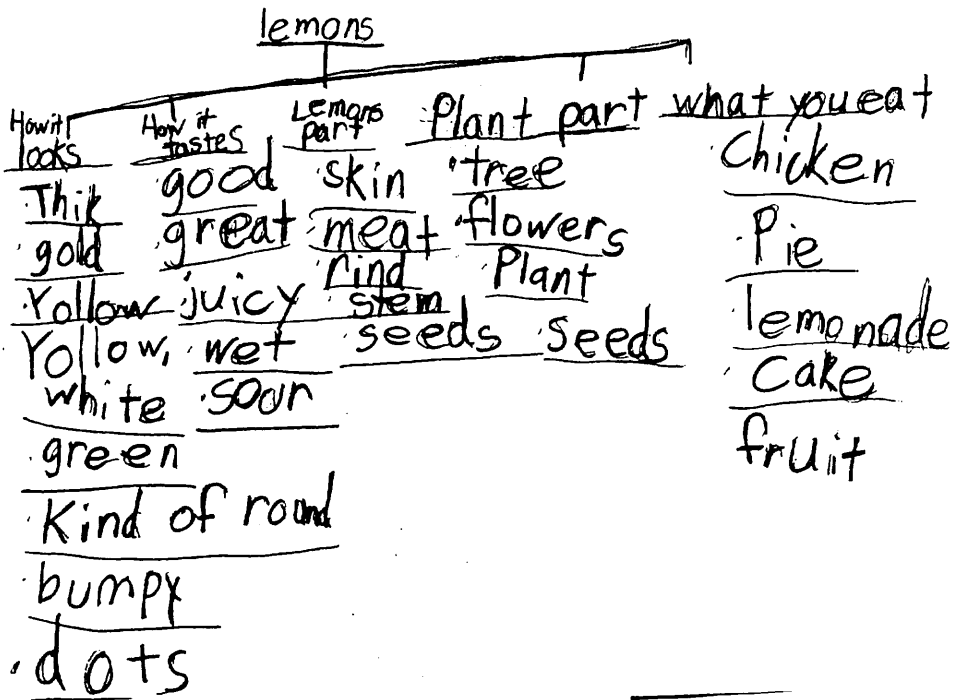 lemons
How it looks
Thik
gold
Yollow
Yollow,
white
green
Kind of round
bumpy
dots
How it tastes
good
great
juicy
wet
sour
Lemons part
skin
meat
rind
stem
seeds
Plant part
tree
flowers
Plant
seeds
what you eat
Chicken
Pie
lemonade
cake
fruit